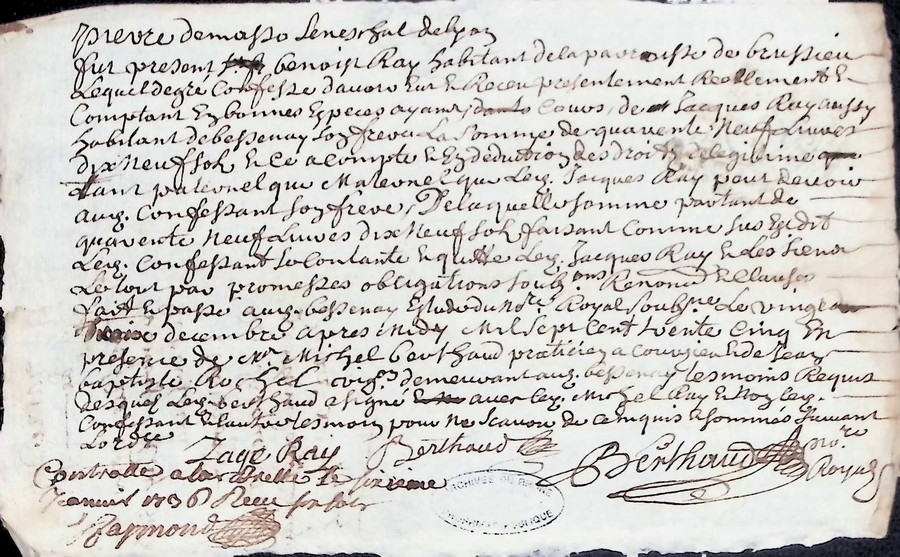 pierre demasso Seneschal de lyon
fut present benoist Ray habitant de la parroisse de brussieu
Lequel degré Confesse davoir Eut et Receu presentement Reellement Et
Comptant En bonnes Especes ayant Cours, de Jacques Ray aussy
habitant de bessenay son frere La somme de quarente Neuf Livres
dix Neuf sols Et Ce a compte et En deduction des droits de legitime
tant paternel que Maternel que Led. Jacques Ray peut devoir
aud. Confessant son frere, De laquelle somme partant de
quarente Neuf Livres dix Neuf sols faisant Comme sus Est dit
Led. Confessant se Contante Et quitte Led. Jacques Ray et Les siens
Le tout par promesses obligations soubons Renond. et Clauses
fait Et passé aud. bessenay Estude du no.re Royal soubs.ne Le vingt
decembre apres Midy Mil sept Cent trente Cinq En
presence de M.re Michel berthaud praticien a Courzieu et de Jean
baptiste demeurant aud. bessenay tesmoins Requis
desquels Led. berthaud a signé avec Led. Ray et Non Led.
Confessant et Lautre tesmoin pour ne scavoir de ce enquis et sommés suivant
Lordre
Jaqe Ray Berthaud
Berthaud no.re Royal
Controlle a la Brelle Le sixieme
Janvier 1736 Receu
Raymond
ARCHIVES DU RHONE